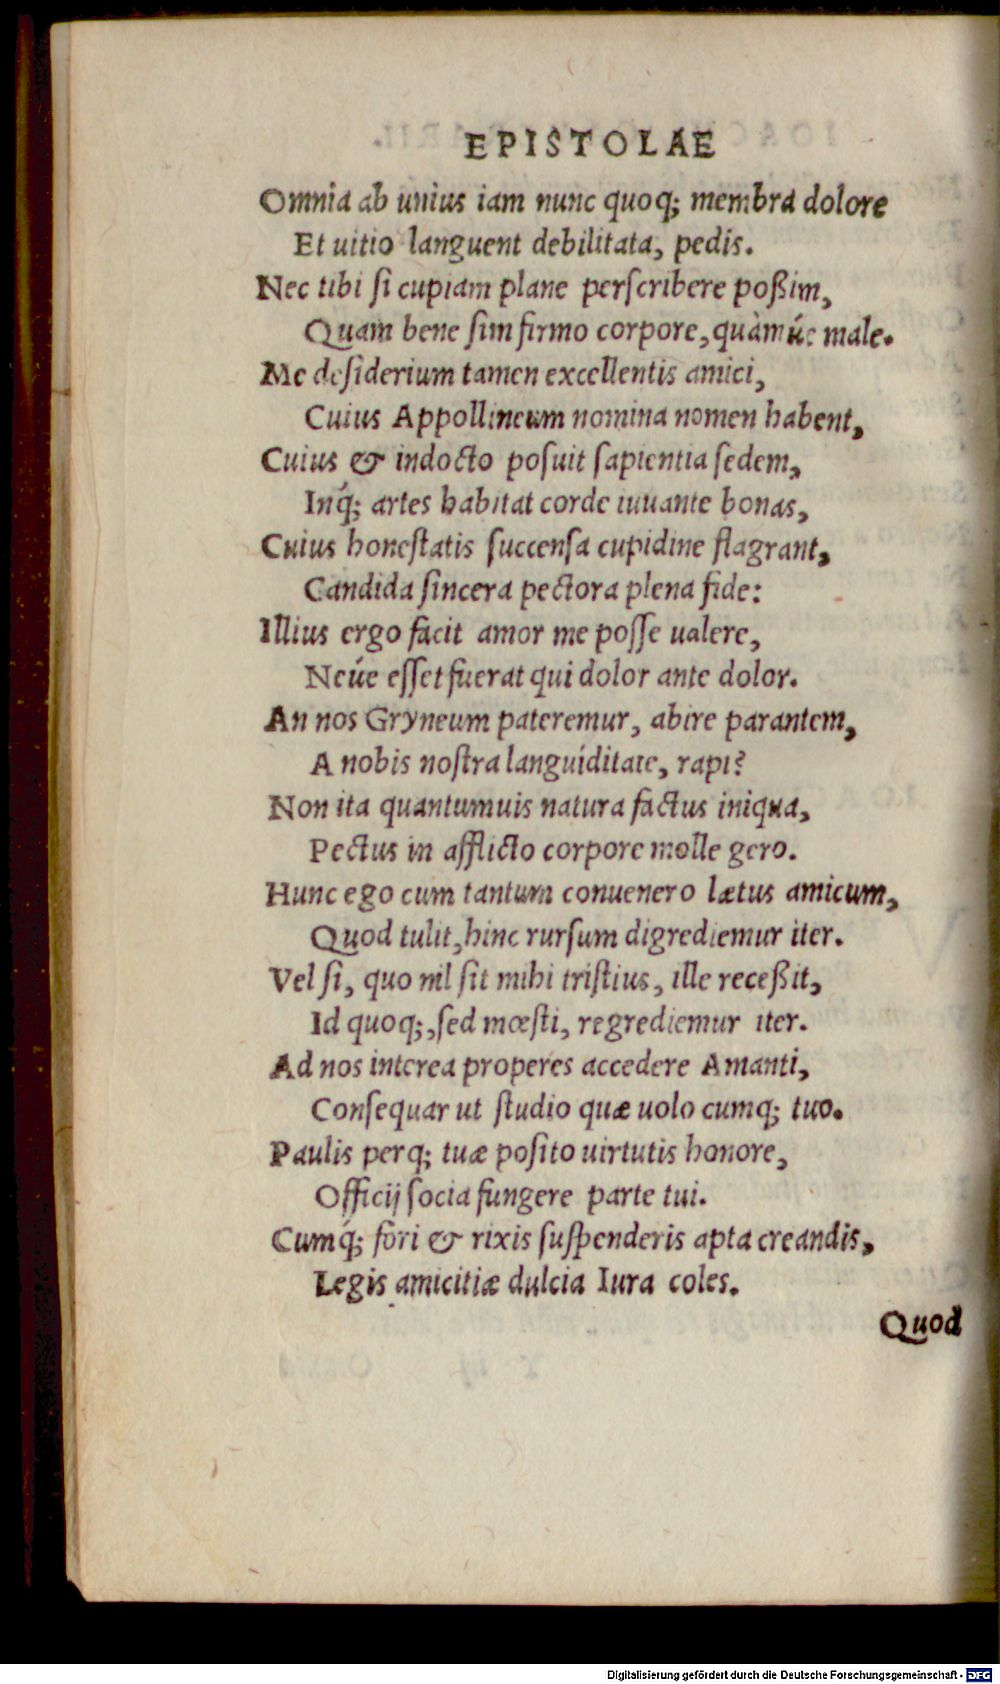 EPISTOLAE
Omnia ab unius iam nunc quoq; membra dolore
Et uitio languent debilitata, pedis.
Nec tibi si cupiam plane perscribere poßim,
Quam bene sim firmo corpore, quàm úe male.
Me desiderium tamen excellentis amici,
Cuius Appollineum nomina nomen habent,
Cuius & indocto posuit sapientia sedem,
Inq́; artes habitat corde iuuante bonas,
Cuius honestatis succensa cupidine flagrant,
Candida sincera pectora plena fide:
Illius ergo facit amor me posse ualere,
Neúe esset fuerat qui dolor ante dolor.
An nos Gryneum pateremur, abire parantem,
A nobis nostra languiditate, rapi?
Non ita quantumuis natura factus iniqua,
Pectus in afflicto corpore molle gero.
Hunc ego cum tantum conuenero lætus amicum,
Quod tulit, hinc rursum digrediemur iter.
Vel si, quo nil sit mihi tristius, ille receßit,
Id quoq;, sed mœsti, regrediemur iter.
Ad nos interea properes accedere Amanti,
Consequar ut studio quæ uolo cumq; tuo.
Paulis perq; tuæ posito uirtutis honore,
Officij socia fungere parte tui.
Cumq́; fori & rixis suspenderis apta creandis,
Legis amicitiæ dulcia Iura coles.
Quod
Digitalisierung gefördert durch die Deutsche Forschungsgemeinschaft - DFG